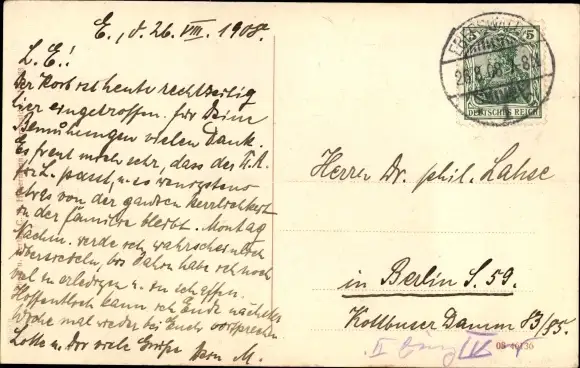 E., d. 26. VIII. 1908.
L. E.!
Der Korb ist heute rechtzeitig
hier eingetroffen. Für Deine
Bemühungen vielen Dank.
Es freut mich sehr, dass der
für L. passt, u. so wenigstens
etwas von der ganzen Herrlichkeit
in der Familie bleibt. Montag
Nachm. werde ich wahrscheinlich
übersiedeln, bis dahin habe ich noch
viel zu erledigen u. zu schaffen.
Hoffentlich kann ich Ende nächster
Woche mal wieder bei Euch vorsprechen
Lotte u. Dir viele Grüße Dein M.
5
26.8.08
DEUTSCHES REICH
Herrn Dr. phil. Lahse
in Berlin S. 59.
Kottbuser Damm 83/85.
08 46136
II IV